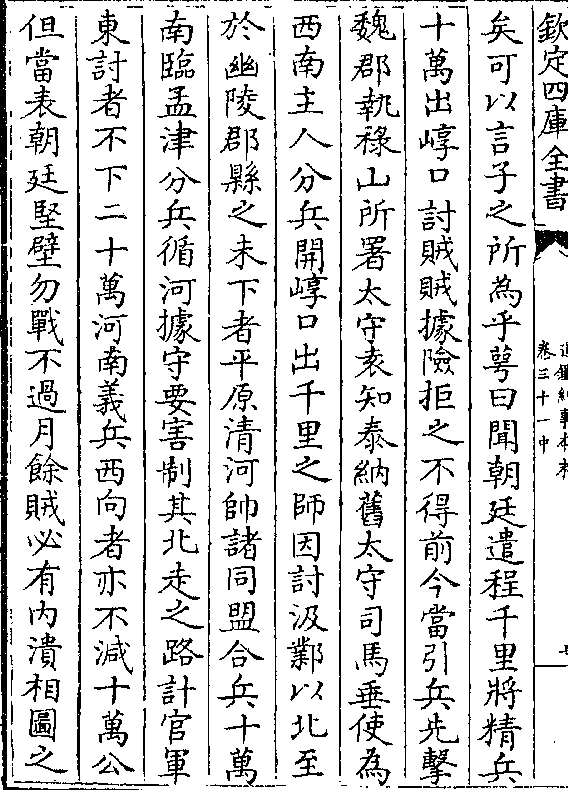 欽定四庫全書
通鑑紀事本末
卷三十一中
七
矣可以言子之所為乎萼曰聞朝廷遣程千里將精兵
十萬出崞口討賊賊據險拒之不得前今當引兵先擊
魏郡執祿山所署太守袁知泰納舊太守司馬垂使為
西南主人分兵開崞口出千里之師因討汲鄴以北至
於幽陵郡縣之未下者平原清河帥諸同盟合兵十萬
南臨孟津分兵循河據守要害制其北走之路計官軍
東討者不下二十萬河南義兵西向者亦不減十萬公
但當表朝廷堅壁勿戰不過月餘賊必有內潰相圖之